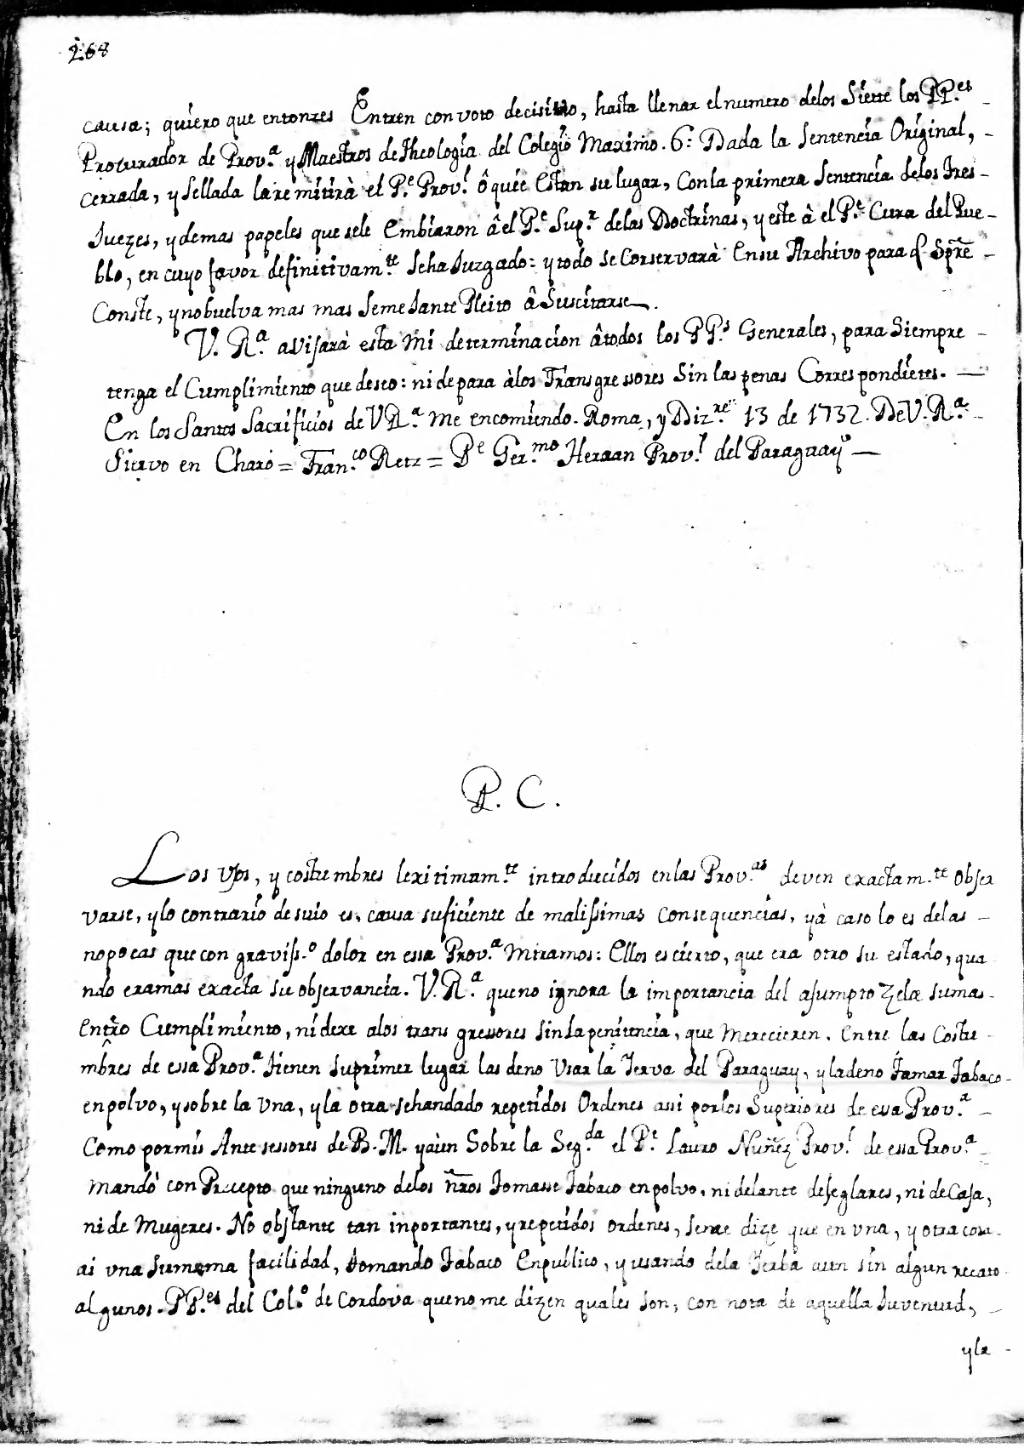 268
causa; quiero que entonzes Entren con voto decisivo, hasta llenar el numero delos Siette los PP.es
Procurador de Prov.a y Maestros de Theologia del Colegio Maximo. 6: Dada la Sentencia Original, -
cerrada, y sellada la remitirà el P.e Prov.l ô quien Estan su lugar, Conla primera Sentencia delos Tres -
Juezes, y demas papeles que sele Embiaron â el P.e Sup.r delas Doctrinas, y este â el P.e Cura del Pue -
blo, en cuyo favor definitivam.te Seha Juzgado: y todo se Conservarà En su Archivo para q Spre -
Conste, y no buelva mas mas Semejante Pleito â Suscitarse.
V. R.a avisarà esta mi determinacion â todos los PP.s Generales, para Siempre -
tenga el Cumplimiento que deseo: ni depara àlos Transgressores Sin las penas Correspondietes. —
En los Santos Sacrificios de V R.a me encomiendo. Roma, y Diz.re 13 de 1732. De V. R.a -
Siervo en Charo = Fran.co Retz = P.e Ger.mo Herran Prov.l del Paraguay —
P. C.
Los usos, y costumbres lexitimam.te introducidos enlas Prov.as deven exactam.te Obser
varse, y lo contrario desuio es, causa suficiente de malissimas Consequencias, yà caso lo es delas -
no pocas que con graviss.o dolor en essa Prov.a Miramos: Ellos es cierto, que era otro su estado, qua
ndo eramas exacta su observancia. V. R.a que no ignora la importancia del asumpto Zele sumas.
Entro Cumplimiento, ni dexe alos trans gressores sin la penitencia, que Merecieren. Entre las Costu -
mbres de essa Prov.a tienen Suprimer lugar las deno Usar la Yerva del Paraguay, y ladeno Tamar Tabaco -
enpolvo, y sobre la una, y la otra sehandado repetidos Ordenes assi porlos Superiores de essa Prov.a -
Como pormis Antesessores de B. M. yaùn Sobre la Seg.da el P.e Lauro Nuñez Prov.l de essa Prov.a -
mandò con Precepto que ninguno delos nros Tomasse Tabaco enpolvo, ni delante de seglares, ni de Casa,
ni de Mugeres. No obstante tan inportantes, y repetidos ordenes, seme dize que en una, y otra cosa -
ai una sumama facilidad, tomando Tabaco Enpublico, y usando dela Yerba aun sin algun recato -
algunos PP.es del Col.o de Cordova que no me dizen quales son, con nota de aquella Juventud, -
yla -